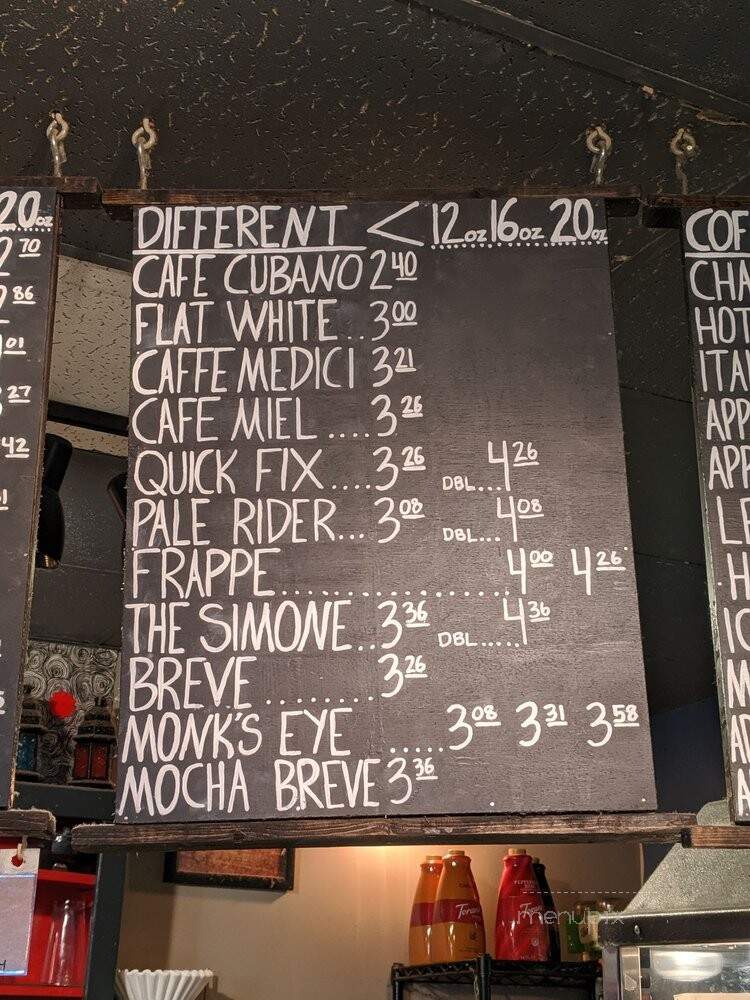 20oz
70
86
01
27
42
DIFFERENT < 12oz 16oz 20oz
CAFE CUBANO 2 40
FLAT WHITE.. 3 00
CAFFE MEDICI 3 21
CAFE MIEL .... 3 26
QUICK FIX.... 3 26 DBL... 4 26
PALE RIDER... 3 08 DBL... 4 08
FRAPPE........................ 4 00 4 26
THE SIMONE.. 3 36 DBL..... 4 36
BREVE ........ 3 26
MONK'S EYE ..... 3 08 3 31 3 58
MOCHA BREVE 3 36
COF
CHA
HOT
ITA
APP
APP
Torani
menupix